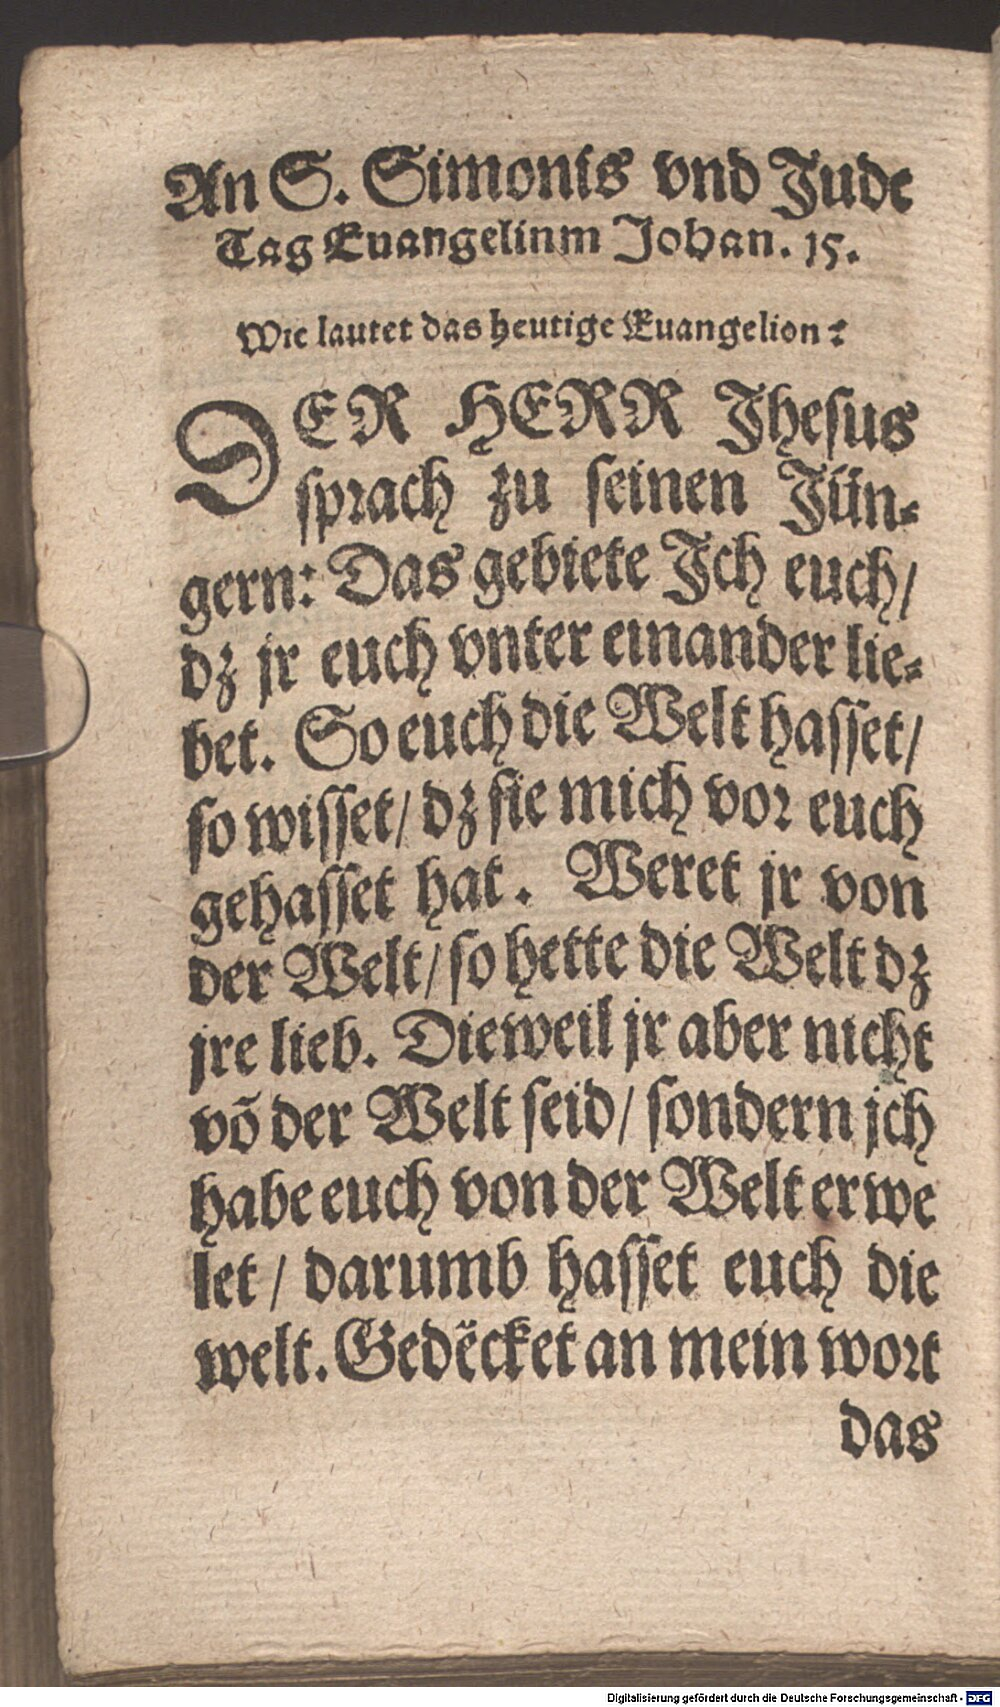 An S. Simonis vnd Jude
Tag Euangelinm Johan. 15.
Wie lautet das heutige Euangelion?
DER HERR Jhesus
sprach zu seinen Jün⸗
gern: Das gebiete Jch euch/
dz jr euch vnter einander lie⸗
bet. So euch die Welt hasset/
so wisset/ dz sie mich vor euch
gehasset hat. Weret jr von
der Welt/ so hette die Welt dz
jre lieb. Dieweil jr aber nicht
võ der Welt seid/ sondern jch
habe euch von der Welt erwe
let/ darumb hasset euch die
welt. Gedẽcket an mein wort
das
Digitalisierung gefördert durch die Deutsche Forschungsgemeinschaft - DFG